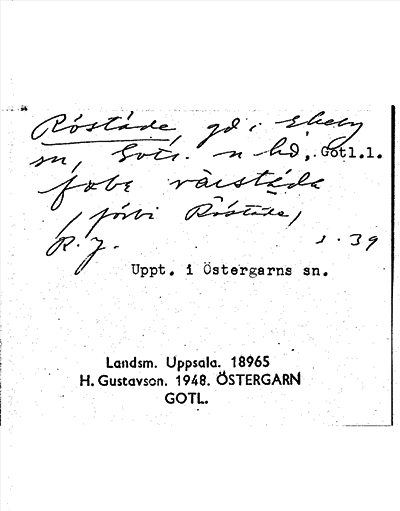 Röstäde, gd i Ekeby
sn, Gotl. n hd, Gotl.l.
fobe
(förbi Röstäde)
R. J. s. 39
Uppt. i Östergarns sn.
Landsm. Uppsala. 18965
H. Gustavson. 1948. ÖSTERGARN
GOTL.